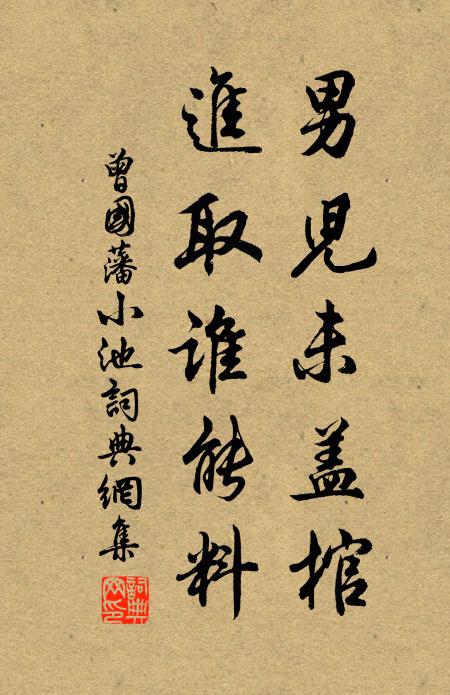 男兒未盖棺
進取谁能料
曾國藩小池詞典網集
詞典网印